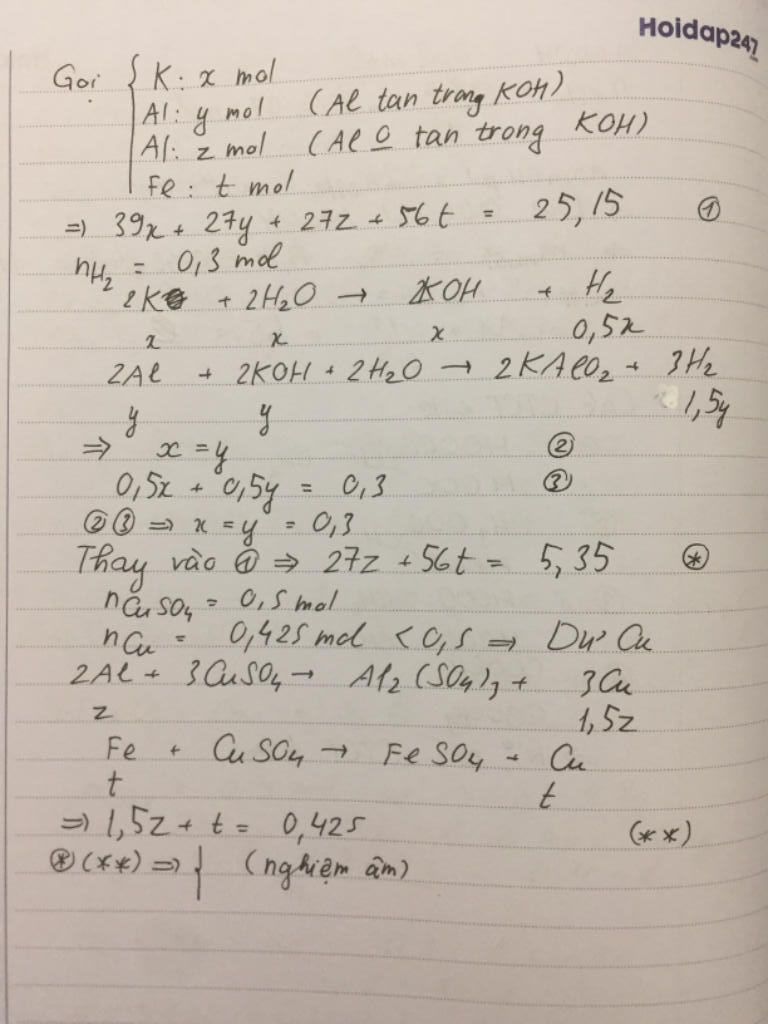 Hoidap247
.com
Gọi { K: x mol
Al: y mol (Al tan trong KOH)
Al: z mol (Al O tan trong KOH)
Fe: t mol
⇒ 39x + 27y + 27z + 56t = 25,15 ①
nH₂ = 0,3 mol
2K + 2H₂O → 2KOH + H₂
x x x 0,5x
2Al + 2KOH + 2H₂O → 2KAlO₂ + 3H₂
y y 1,5y
⇒ x = y ②
0,5x + 0,5y = 0,3 ③
②③ ⇒ x = y = 0,3
Thay vào ① ⇒ 27z + 56t = 5,35 (*)
nCuSO₄ = 0,5 mol
nCu = 0,425 mol < 0,5 ⇒ Dư Cu
2Al + 3CuSO₄ → Al₂(SO₄)₃ + 3Cu
z 1,5z
Fe + CuSO₄ → FeSO₄ + Cu
t t
⇒ 1,5z + t = 0,425 (**)
(*)(**) ⇒ { (nghiệm âm)